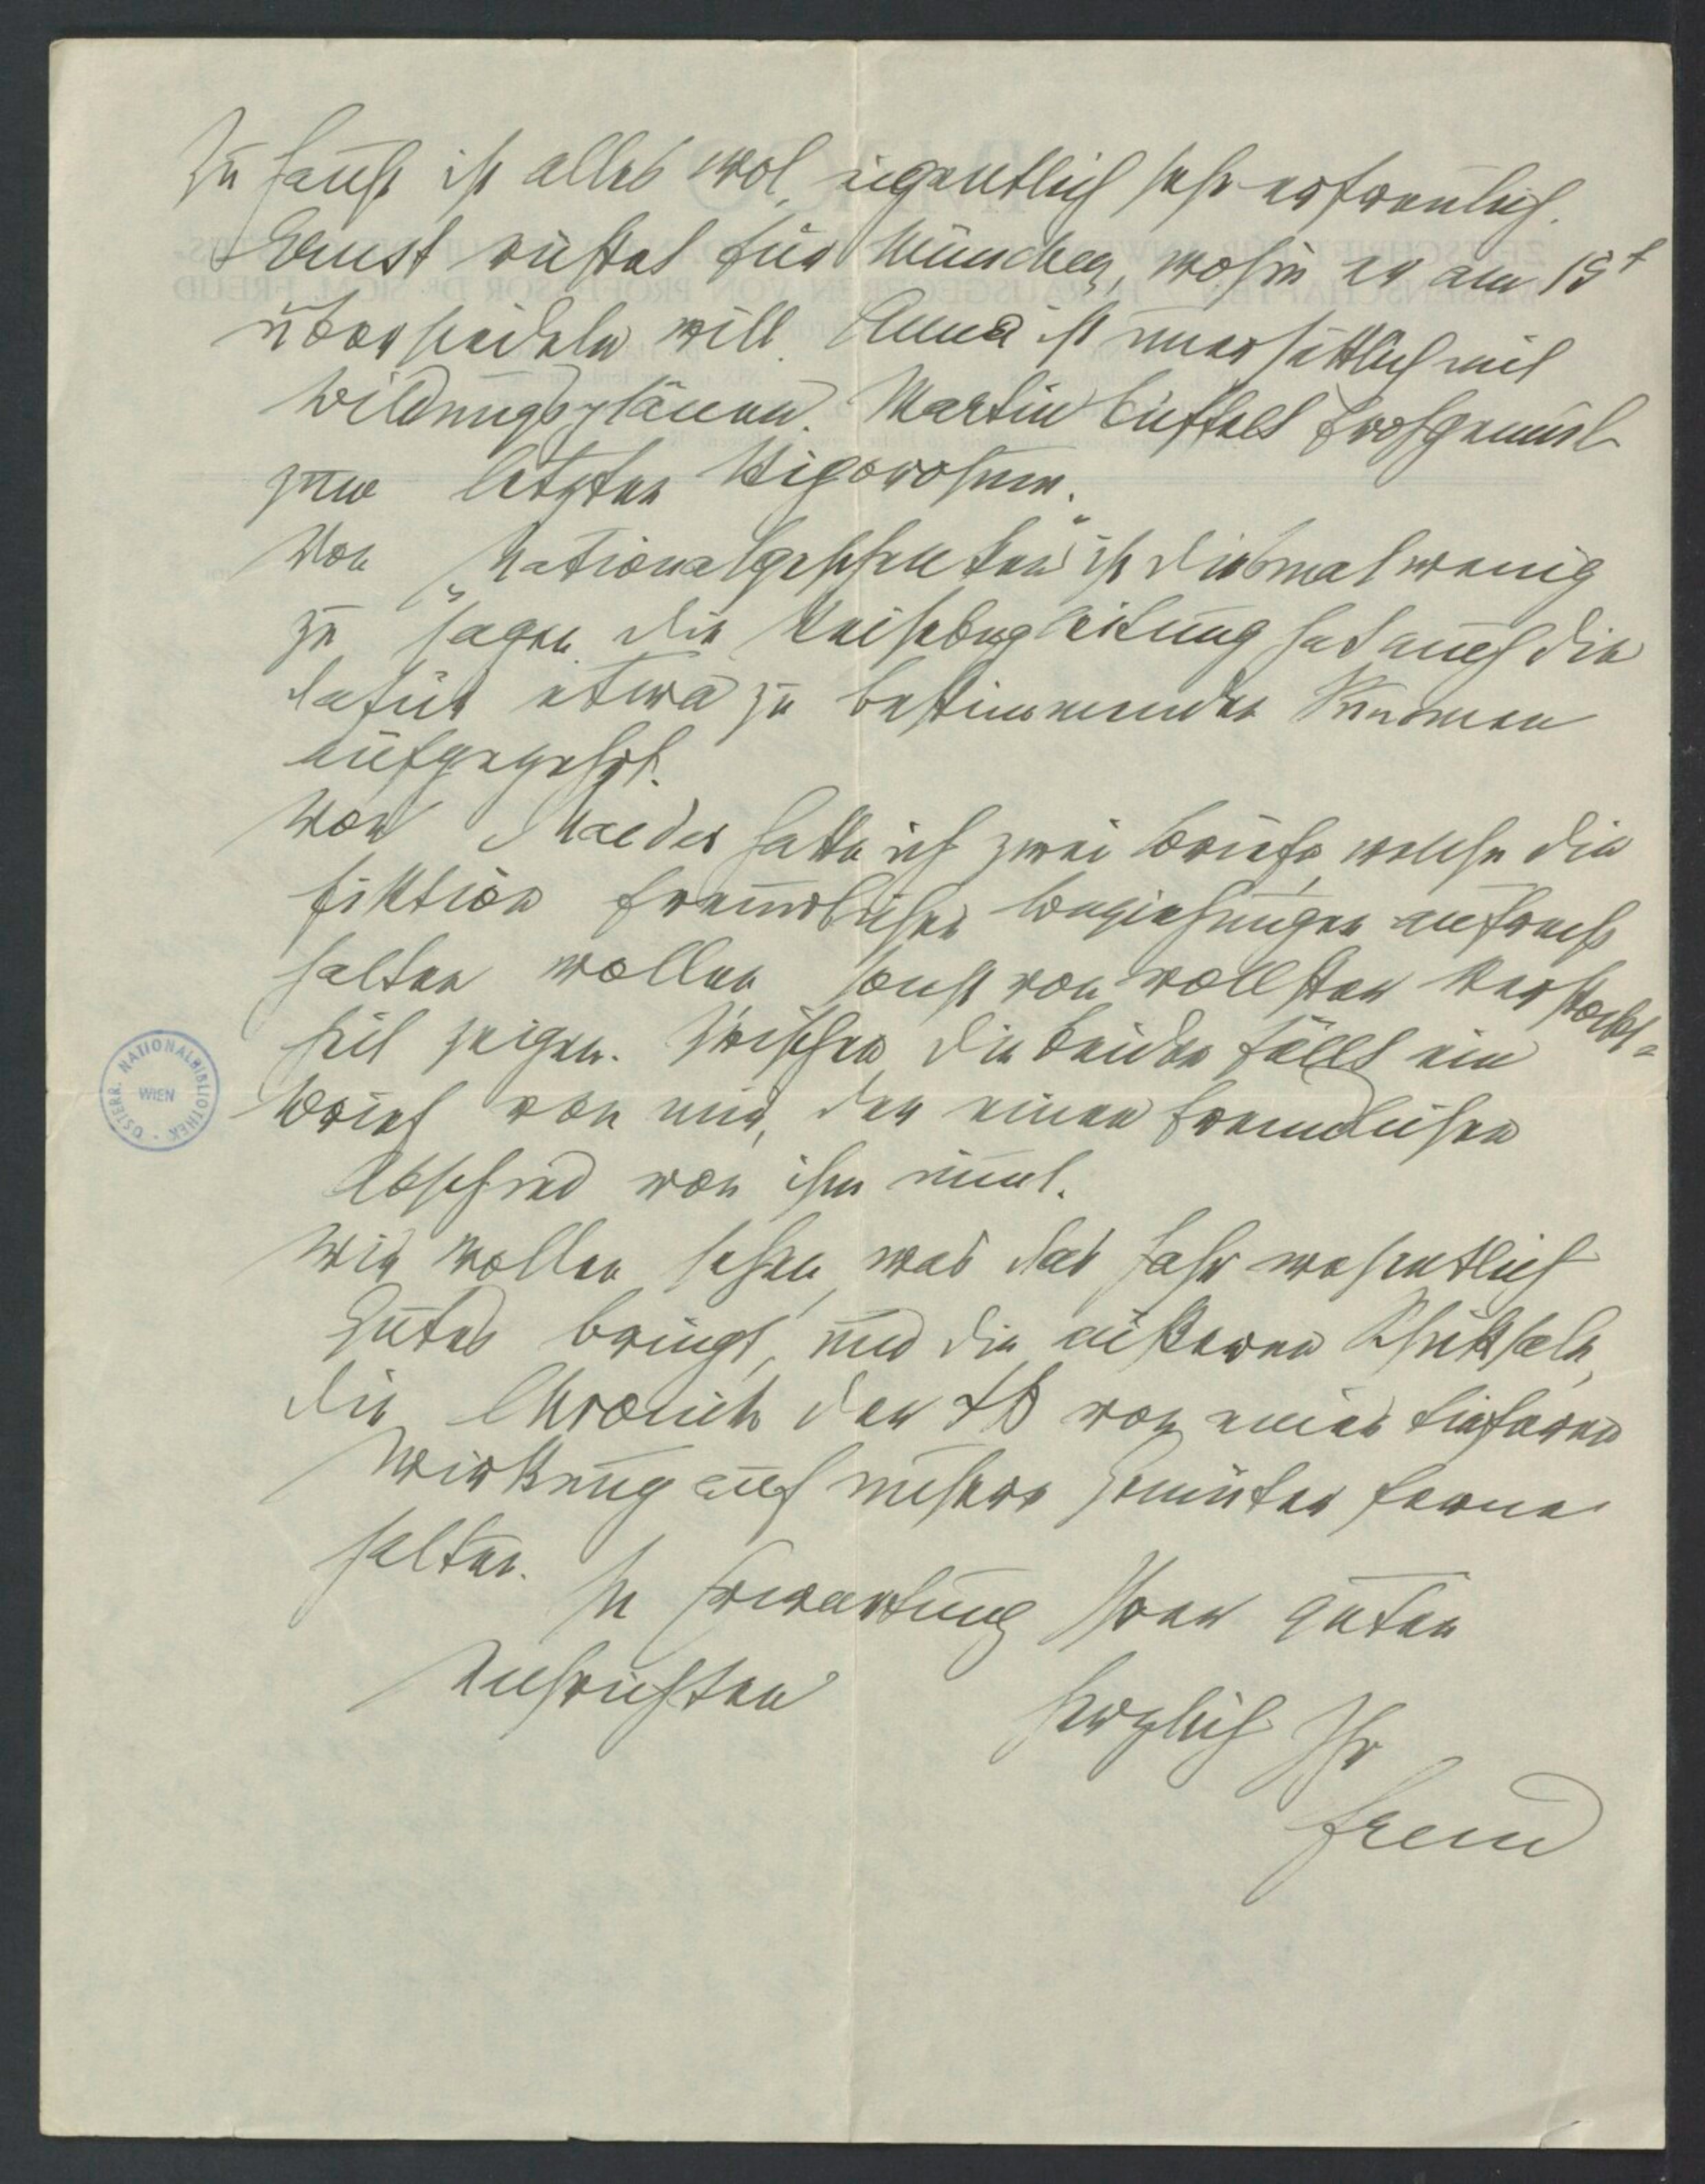 Zu Hause ist alles wol, eigentlich sehr erfreulich.
Ernst rüstet für München, wohin er am 15t
übersiedeln will. Anna ist unersättlich mit
Bildungsplänen. Martin büffelt frohgemut
zum letzten Rigorosum.
Von „Nationalgeschenken“ ist diesmal wenig
zu sagen. Die Reisebegleitung hat auch die
dafür etwa zu bestimmenden Summen
aufgezehrt.
Von Maeder hatte ich zwei Briefe, welche die
Fiktion freundlicher Beziehungen aufrecht
halten wollen, sonst von vollster Verstockt-
heit zeigen. Zwischen die beiden fällt ein
Brief von mir, der einen freundlichen
Abschied von ihm nimt.
Wir wollen sehen, was das Jahr wesentlich
Gutes bringt, und die äußeren Schicksale,
die Chronik der ΨΑ von einer tieferen
Wirkung auf unsere Gemüter ferne
halten.
In Erwartung Ihrer guten
Nachrichten
herzlich Ihr
Freud
ÖSTERR. NATIONALBIBLIOTHEK
WIEN